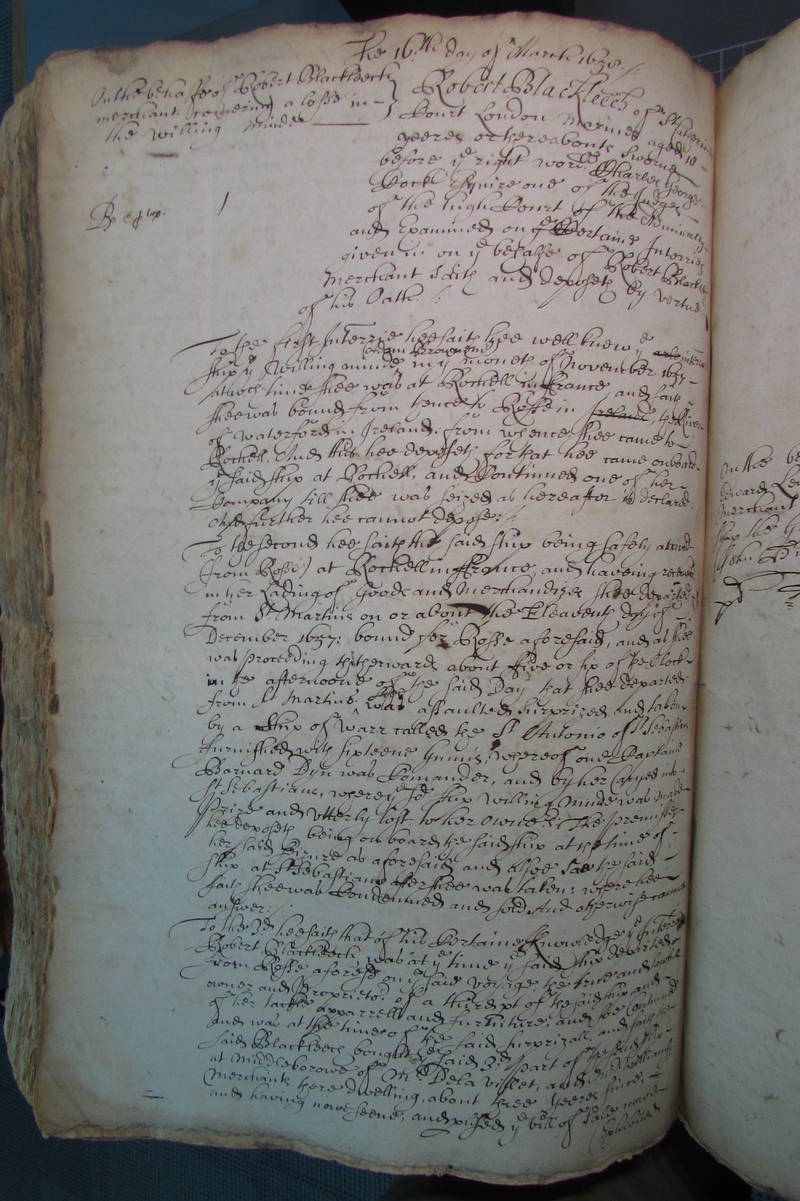 The 16:th day of March 1658:/
On the behalfe of Robert Blackleech
merchant concerning a losse in
the Willing Minde
Rp
Robert Blackleech of St Catherine
Court London Mariner aged 18
yeeres or thereabouts sworne
before ye right worll Charles George
Cock Esquire one of the Judges
of the high Court of the Admiralty
and Examined on Certaine Interries
given in on ye behalfe of Robert Blackleech
Merchant Saith and deposeth by vertue
of his Oath :/
To the first Interrie hee saith hee well knew ye
shipp ye Willing minde in ye moneth of November 1657
at wch time shee was at Rochell in France and saith
shee was bound from thence to Rosse in Ireland, the River
of Waterford in Ireland. from whence shee came to
Rochell. And this hee deposeth for that hee came onboard
ye said ship at Rochell, and Continued one of her
Company till shee was seized as hereafter is declared.
And further hee cannot depose:/
To the second hee saith the said ship being safely arrived
(from Rosse) at Rochell in France, and haveing received
in her Lading of Goods and Merchandizes shee departed
from St Martins on or about the Eleaventh day of
December 1657: bound for Rosse aforesaid, and as shee
was proceeding thitherwards about five or six of the Clock
in the afternoone of the said Day that shee departed
from St Martins, shee was assaulted surprized and taken
by a ship of warr called the St Antonio of St Sebastian
furnished with sixteene Gunns, whereof one Captaine
Barnard Dyn was Comander, and by her Caryed into
St Sebastians, where ye sd ship Willing Minde was made
prize and utterly lost to her owners; The premisses
hee deposeth being on board the said ship at the time of
her said seizure as aforesaid and alsoe saw the said
ship at St Sebastians after shee was taken: where hee
saith shee was Condemned and sold. And otherwise cannot
answer:/
To the 3d hee saith that of his Certaine knowledge ye Interrte
Robert Blackleech was at ye time ye said ship departed
from Rosse aforesd on ye said voyage the true and lawfull
owner and Proprietor of a third pt of the said ship and
of her tackle apparrell and furniture, and soe Continued
and was at the time of the said surprizall and saith the
said Blackleech bought ye said 3d part of the said ship
at Middleborowe of Mr De la Villet, and
Merchants there dwelling, about three yeeres since,
and having nowe seene, and ye bill of Sale nowe
exhibited
On the be
Edward
Merchant
ship the
John